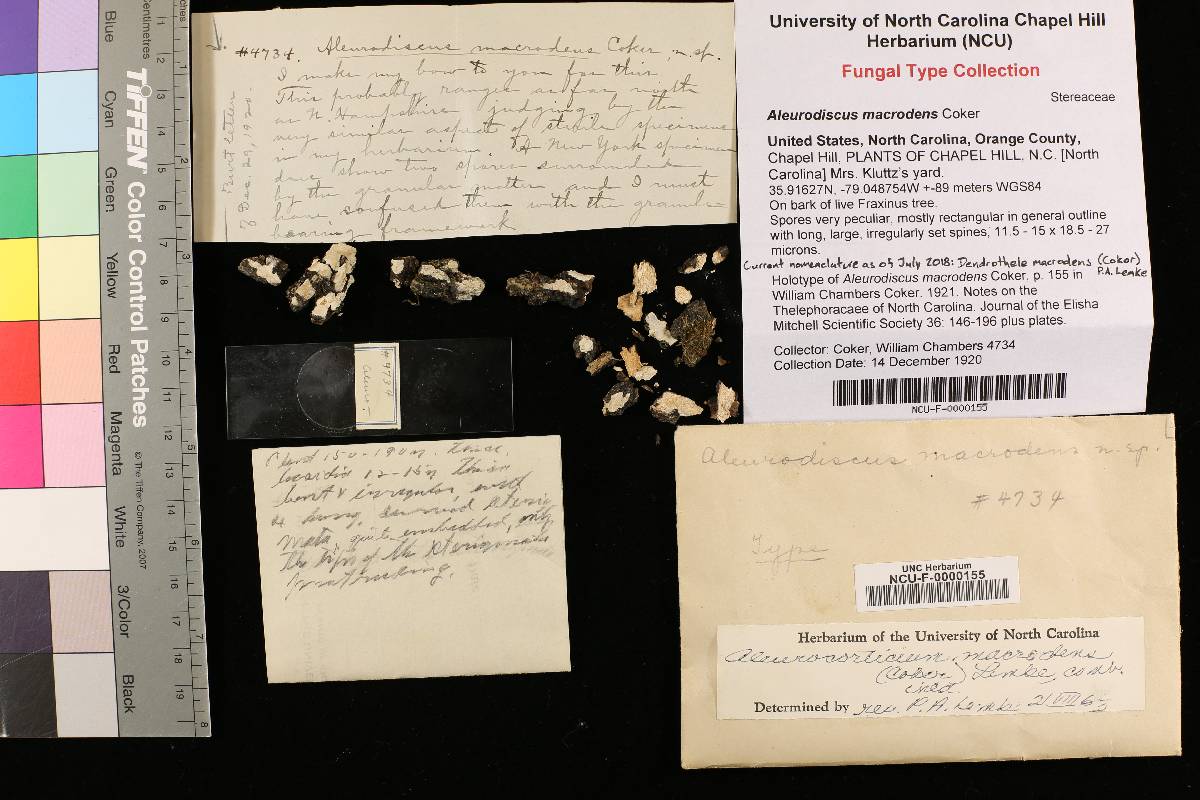 Blue
Cyan
Green
Yellow
Red
Magenta
White
3/Color
Black
Centimetres
TIFFEN Color Control Patches
© The Tiffen Company, 2007
1 2 3 4 5 6 7 8 9 10 11 12 13 14 15 16 17 18 19
1 2 3 4 5 6 7 8
#4734. Aleurodiscus macrodens Coker, n. sp.
I make my bow to you for this.
This probably ranges as far north
as N. Hampshire judging by the
very similar aspect of sterile specimens
in my herbarium. A New York specimen
does show two spores surrounded
by the granular matter and I must
have confused them with the granule
bearing framework
Burt letter
Dec. 29, 1920.
#4734
Aleuro.
150-190µ. thick,
basidia 12-15µ thick
bent & irregular with
4 long, curved sterig
mata, quite embedded, only
the tips of the sterigmata
protruding.
University of North Carolina Chapel Hill
Herbarium (NCU)
Fungal Type Collection
Stereaceae
Aleurodiscus macrodens Coker
United States, North Carolina, Orange County,
Chapel Hill, PLANTS OF CHAPEL HILL, N.C. [North
Carolina] Mrs. Kluttz's yard.
35.91627N, -79.048754W +-89 meters WGS84
On bark of live Fraxinus tree.
Spores very peculiar, mostly rectangular in general outline
with long, large, irregularly set spines, 11.5 - 15 x 18.5 - 27
microns.
Current nomenclature as of July 2018: Dendrothele macrodens (Coker)
P.A. Lemke
Holotype of Aleurodiscus macrodens Coker, p. 155 in
William Chambers Coker. 1921. Notes on the
Thelephoraceae of North Carolina. Journal of the Elisha
Mitchell Scientific Society 36: 146-196 plus plates.
Collector: Coker, William Chambers 4734
Collection Date: 14 December 1920
NCU-F-0000155
Aleurodiscus macrodens n. sp.
#4734
Type
UNC Herbarium
NCU-F-0000155
Herbarium of the University of North Carolina
Aleurocorticium macrodens
(Coker) Lemke, comb.
ined.
Determined by rev. P.A. Lemke 2 VIII 63